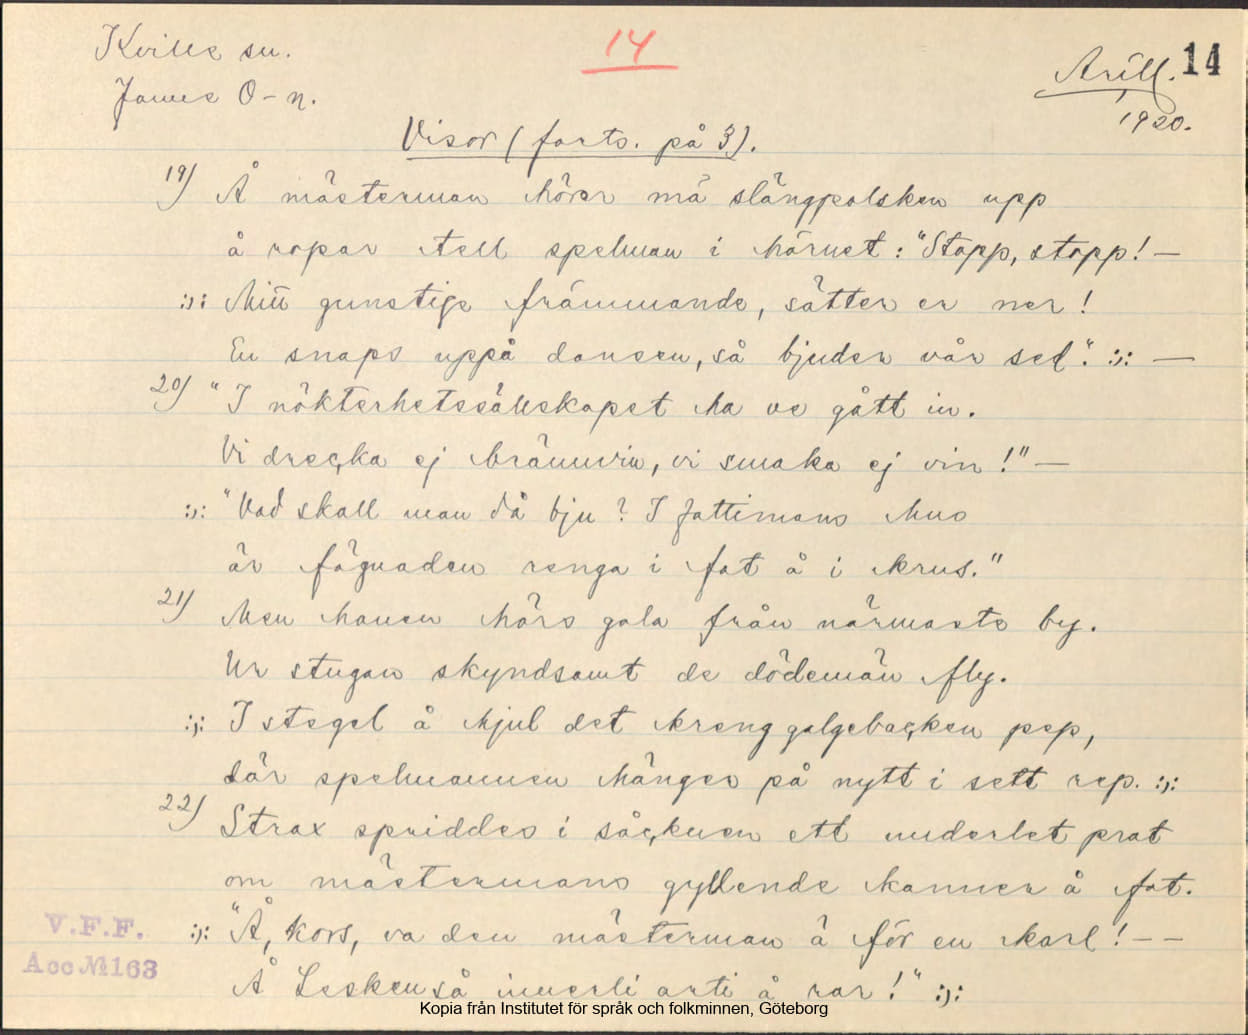 Kville sn.
14
Arill. 14
James O-n.
1920.
Visor (forts. på 3).
19) Å mästerman hörer mä slängpolsken upp
å ropar tell spelman i hörnet: "Stopp, stopp! —
:;: Min gunstige främmande, sätter er ner!
En snaps uppå dansen, så bjuder vår sed." :;: —
20) "I nökterhetssällskapet ha ve gått in.
Vi drecka ej brännvin, vi smaka ej vin!" —
:;: "Vad skall man då bju? I fattimans hus
är fägnaden renga i fat å i krus."
21) Men hanen hörs gala från närmaste by.
Ur stugan skyndsamt de dödemän fly.
:;: I stegel å hjul det kreng galgebacken pep,
där spelmannen hänges på nytt i sett rep. :;:
22) Strax spriddes i såcknen ett underlet prat
om mästermans gyllende kanner å fat.
:;: "Å, kors, va den mästerman ä för en karl! — —
Å Lesken så innerli arti å rar!" :;:
V.F.F.
Acc № 163
Kopia från Institutet för språk och folkminnen, Göteborg